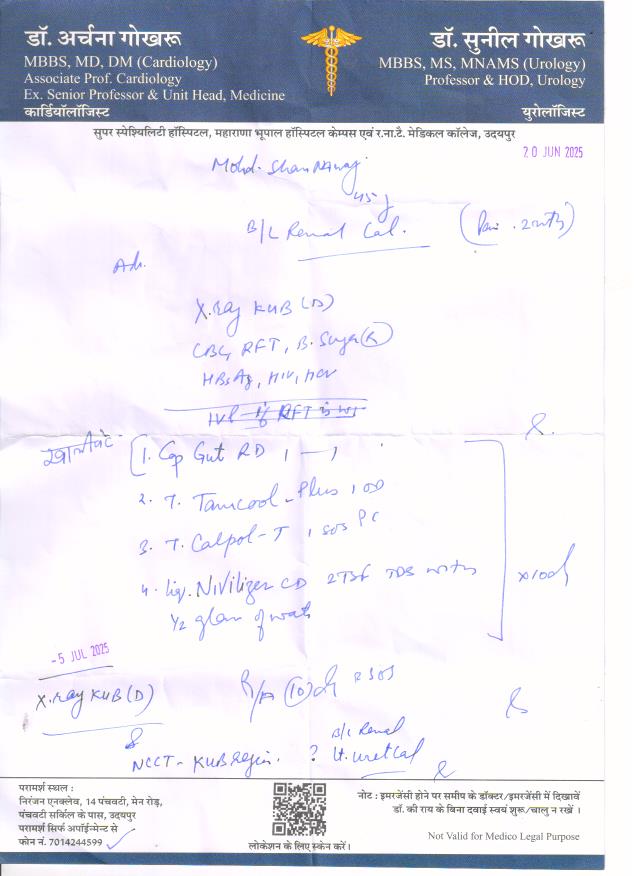 डॉ. अर्चना गोखरू
MBBS, MD, DM (Cardiology)
Associate Prof. Cardiology
Ex. Senior Professor & Unit Head, Medicine
कार्डियोलॉजिस्ट
डॉ. सुनील गोखरू
MBBS, MS, MNAMS (Urology)
Professor & HOD, Urology
यूरोलॉजिस्ट
सुपर स्पेश्यिलिटी हॉस्पिटल, महाराणा भूपाल हॉस्पिटल केम्पस एवं र.ना.टै. मेडिकल कॉलेज, उदयपुर
20 JUN 2025
Mohd. Shan Nawaj
45 y
B/L Renal Cal.
Adv.
X.ray KUB (D)
CBC, RFT, B. Sugar (R)
HBsAg, HIV, HCV
IVP if RFT is
1. Cap Gut RD 1 — 1
2. T. Tamcool-Plus 1 OD
3. T. Calpol-T 1 SOS PC
4. Liq. Nivilizer CD 2TSF TDS with
1/2 glass of water
x10d
-5 JUL 2025
X.ray KUB (D)
(10) d SOS
NCCT-KUB Region. ? B/L Renal
Lt. Uret Cal
परामर्श स्थल :
निरंजन एनक्लेव, 14 पंचवटी, मेन रोड़,
पंचवटी सर्किल के पास, उदयपुर
परामर्श सिर्फ अपॉईन्मेन्ट से
फोन नं. 7014244599
लोकेशन के लिए स्केन करें।
नोट : इमरजेंसी होने पर समीप के डॉक्टर/इमरजेंसी में दिखावें
डॉ. की राय के बिना दवाई स्वयं शुरू/चालु न रखें ।
Not Valid for Medico Legal Purpose